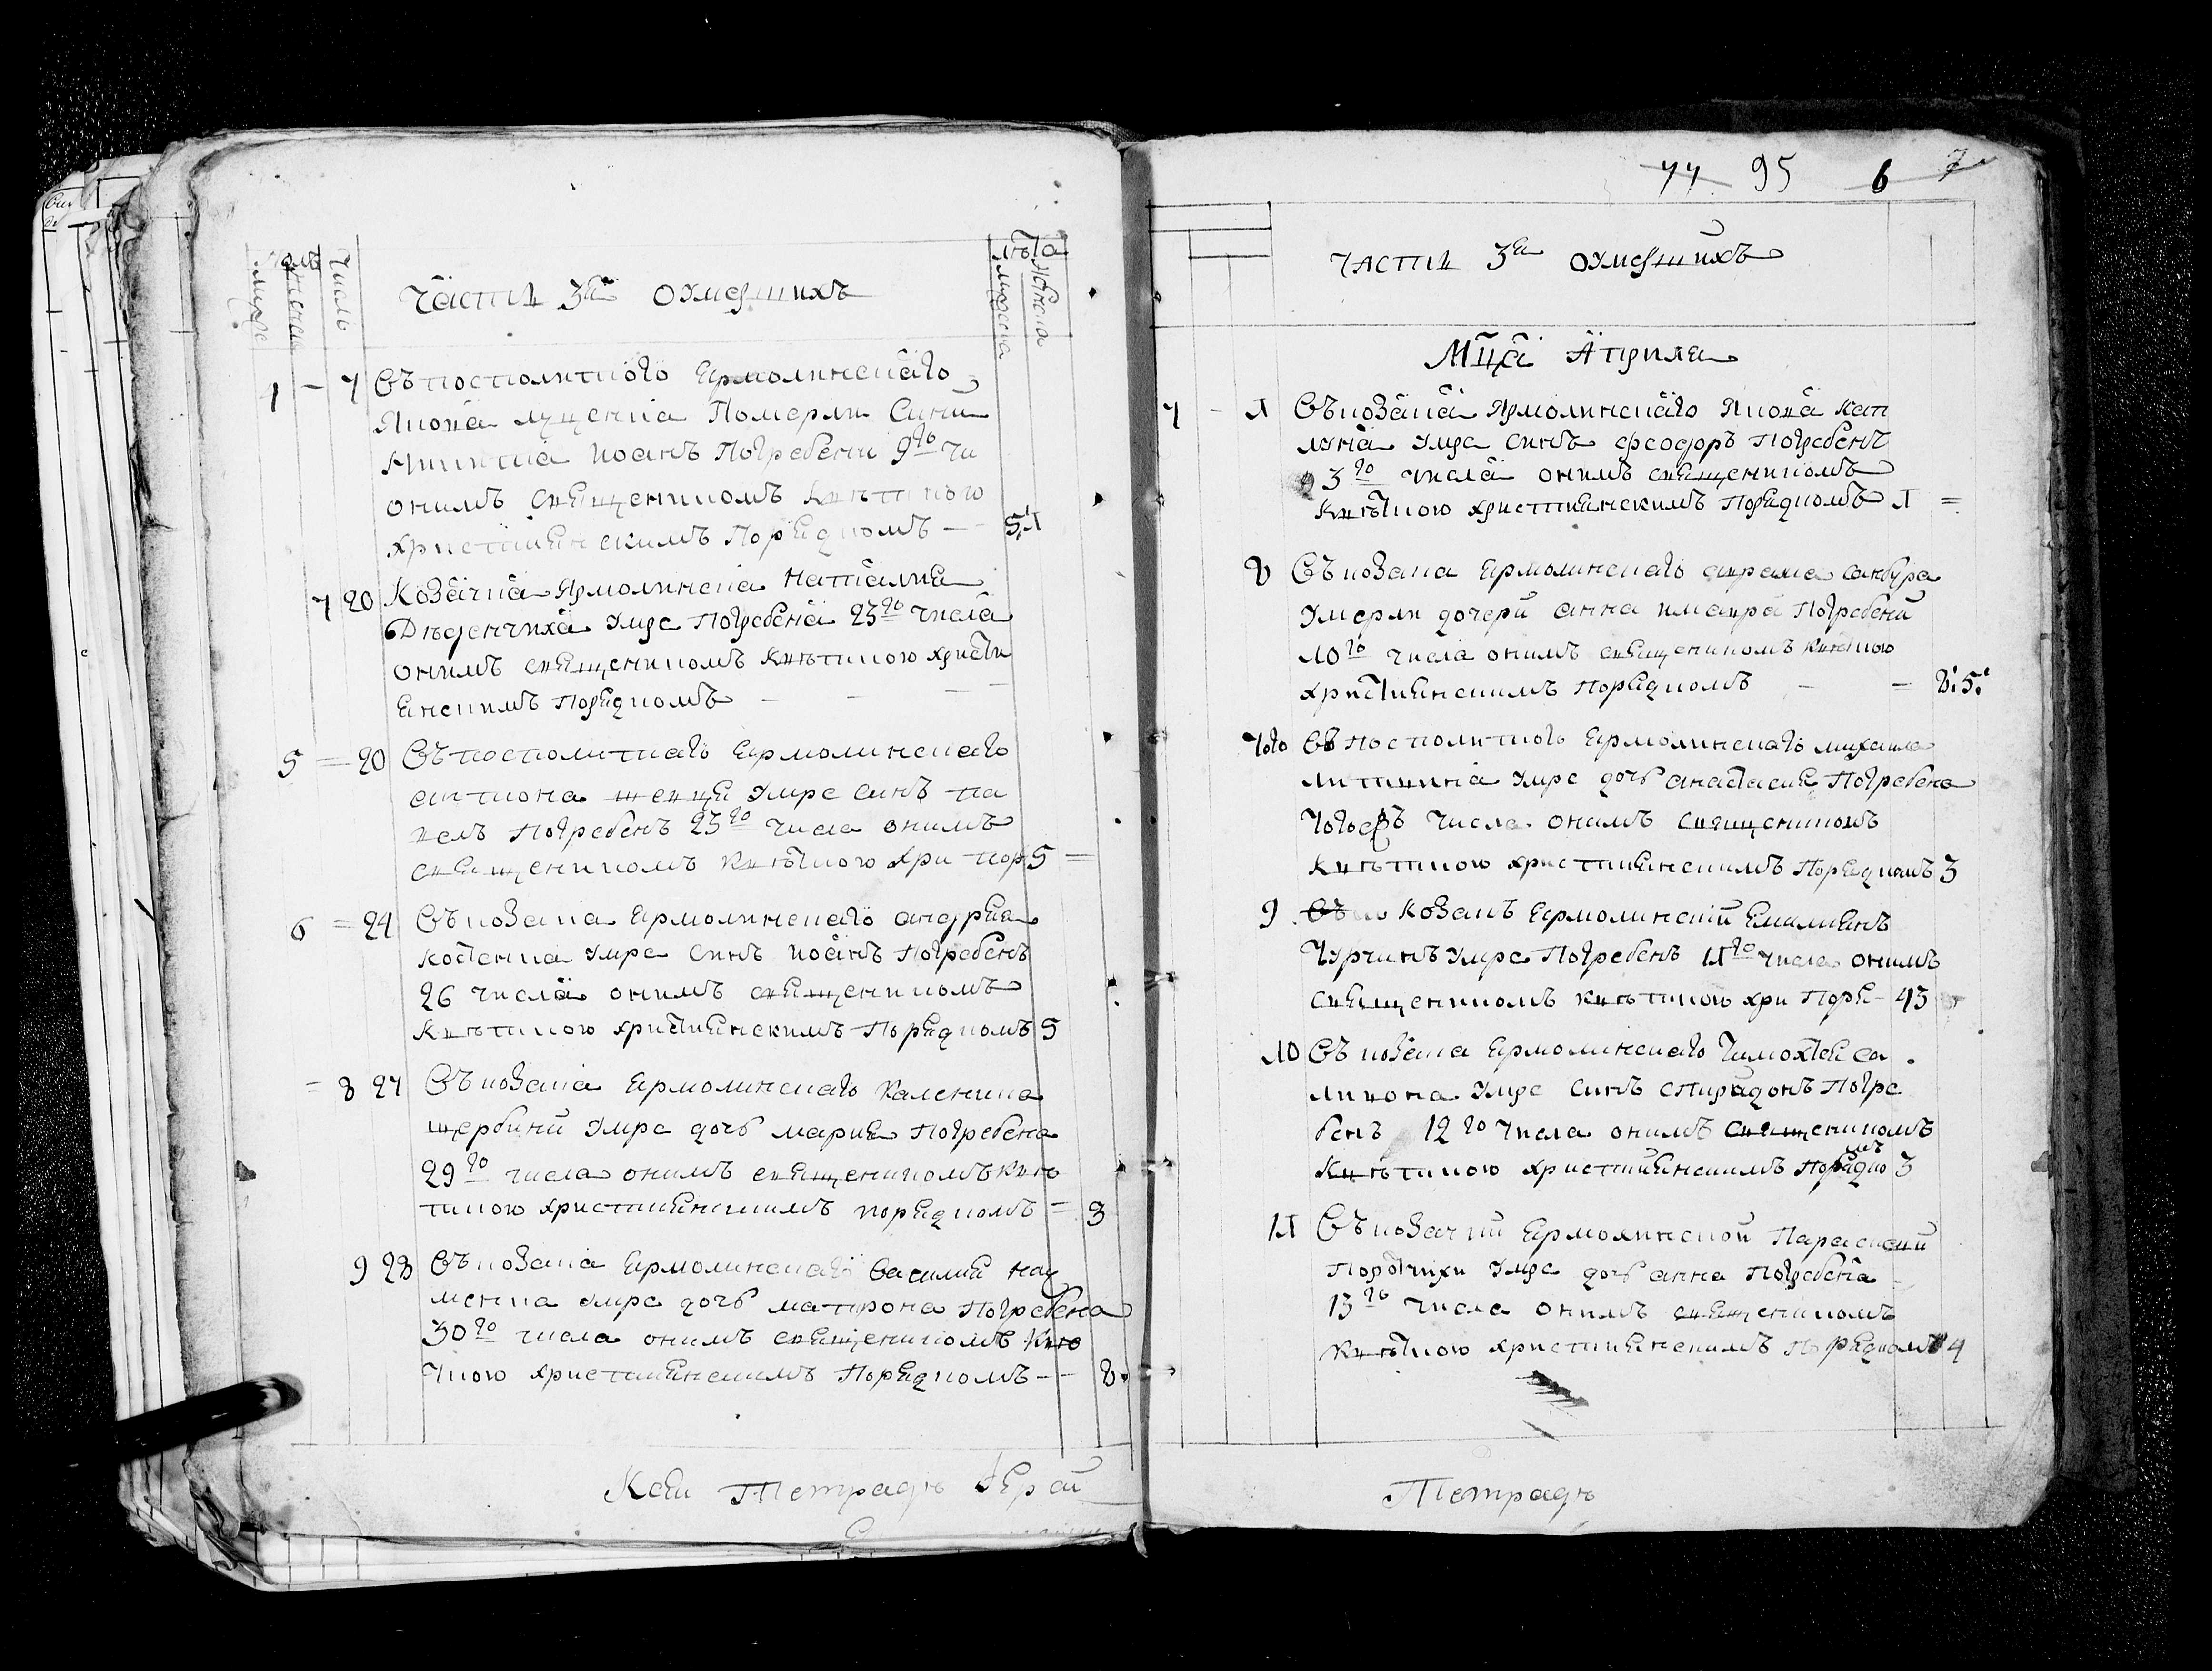 Числъ
лѣта
части 3и оумершихъ
1 — 7 Въ посполитого Ермолинского
Якова луценка Померли Сини
Никита Иоанъ Погребени 9го чи
онимъ священикомъ Квѣткою
християнскимъ Порядкомъ — 5.1
7 20 Козачка Ярмолинска Наталия
Дяденчиха Умре Погребена 23го числа
онимъ священикомъ Квѣткою христи
янскимъ Порядкомъ —
5 = 20 Въ посполитаго Ермолинскаго
антиона шевця Умре синъ па
велъ Погребенъ 23го числа онимъ
священикомъ Квѣткою хри пор 5 =
6 = 24 Въ козака Ермолинскаго андрея
костенка Умре Синъ Иоанъ Погребенъ
26 числа онимъ священикомъ
Квѣткою християнскимъ Порядкомъ 5
= 8 27 Въ козака Ермолинскаго Каленика
щербини Умре дочь мария Погребена
29го числа онимъ священикомъ Квѣ
ткою християнскимъ порядкомъ = 3
9 28 Въ козака Ермолинскаго Василия нау
менка умре дочь матрона Погребена
30го числа онимъ священикомъ Квѣ
ткою християнскимъ Порядкомъ — 8.
Кея Тетрадь Iерей
77 95 6 7
части 3и оумершихъ
Мца Априля
7 — 1 Въ козака Ярмолинскаго Якова кап
луна Умре Синъ феодоръ Погребенъ
3го числа онимъ священикомъ
Квѣткою християнскимъ Порядкомъ 1 =
8 Въ козака Ермолинскаго
Умерли дочери анна имавра Погребени
10го числа онимъ священикомъ Квѣткою
християнскимъ Порядкомъ — = 8.5.
того Въ посполитого Ермолинскаго михаила
литвина Умре дочь анастасия Погребена
тогожъ числа онимъ священикомъ
Квѣткою християнскимъ Порядкомъ 3
9 Въ Козакъ Ермолинский Емилиянъ
Чурчинъ Умре Погребенъ 11го числа онимъ
священикомъ Квѣткою хри Поря — 43
10 Въ козака Ермолинскаго Тимохтея са
ливона Умре Синъ спиридонъ Погре
бенъ 12го числа онимъ священикомъ
Квѣткою християнскимъ Порядкомъ 3
11 Въ козачки Ермолинской Параскеви
Портчихи Умре дочь анна Погребена
13го числа онимъ священикомъ
Квѣткою християнскимъ Порядкомъ 4
Тетрадь